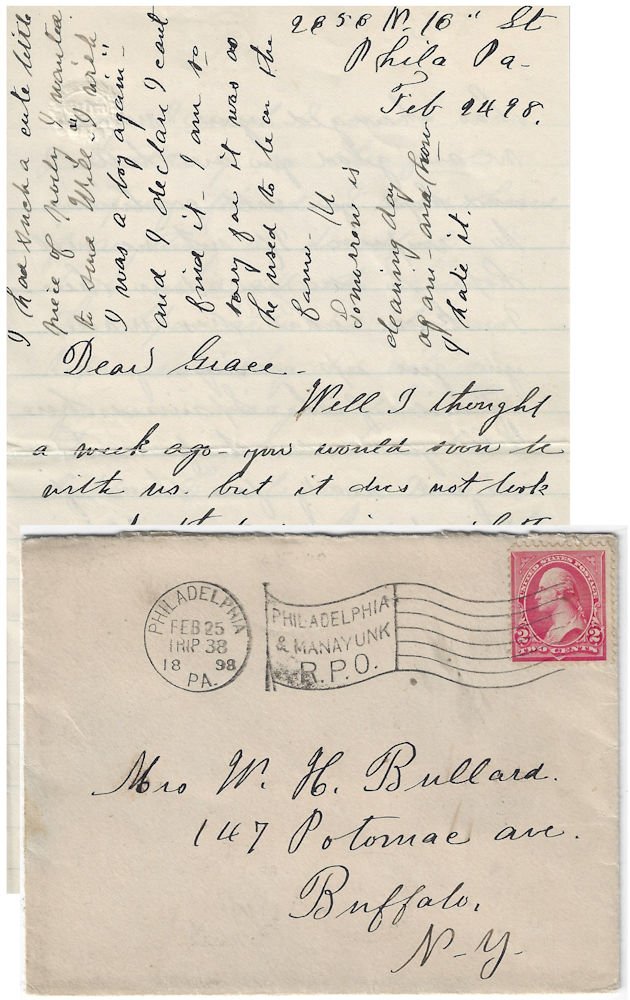 2656 N. 16" St
Phila Pa-
Feb 24 98.
Dear Grace-
Well I thought
a week ago- you would soon be
with us. but it does not look
I had such a cute little
piece of poetry I wanted
to send Will. "I wish
I was a boy again"-
and I declare I cant
find it- I am so
sorry for it was as
he used to be on the
farm-
tomorrow is
cleaning day
again- and how
I hate it.
PHILADELPHIA
FEB 25
TRIP 38
18 98
PA.
PHILADELPHIA
& MANAYUNK
R.P.O.
UNITED STATES POSTAGE
2 2
TWO CENTS
Mrs W. H. Bullard.
147 Potomac ave.
Buffalo,
N-Y-